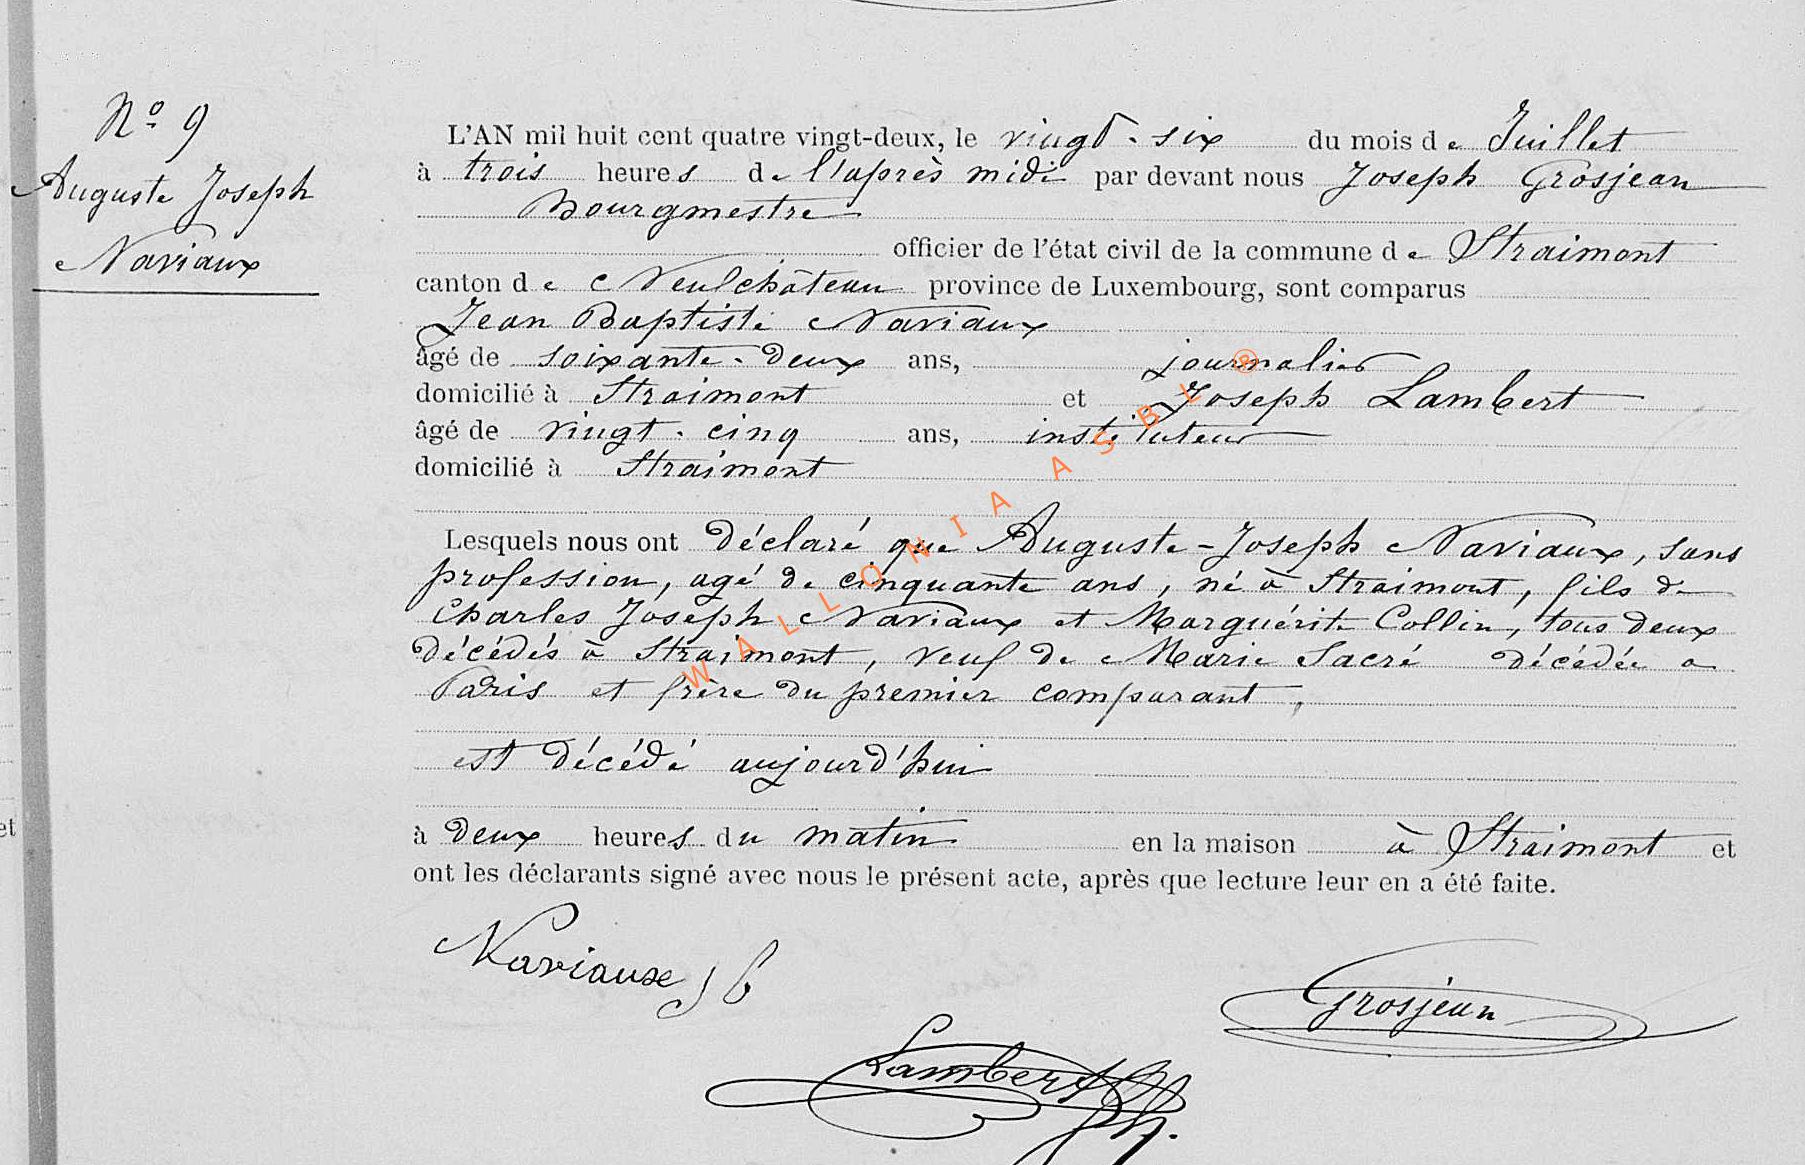 Nº 9
Auguste Joseph
Naviaux
L'AN mil huit cent quatre vingt-deux, le vingt-six du mois de Juillet
à trois heures de l'après midi par devant nous Joseph Grosjean
Bourgmestre
officier de l'état civil de la commune de Straimont
canton de Neufchâteau province de Luxembourg, sont comparus
Jean Baptiste Naviaux
âgé de soixante-deux ans, journalier
domicilié à Straimont et Joseph Lambert
âgé de vingt-cinq ans, instituteur
domicilié à Straimont
Lesquels nous ont déclaré que Auguste-Joseph Naviaux, sans
profession, agé de cinquante ans, né à Straimont, fils de
Charles Joseph Naviaux et Marguérite Collin, tous deux
décédés à Straimont, veuf de Marie Sacré décédée a
Paris et frère du premier comparant,
est décédé aujourd'hui
à deux heures du matin en la maison à Straimont et
ont les déclarants signé avec nous le présent acte, après que lecture leur en a été faite.
Naviaux J b
Grosjean
Lambert Jh.
WALLONIA ASBL ®
et